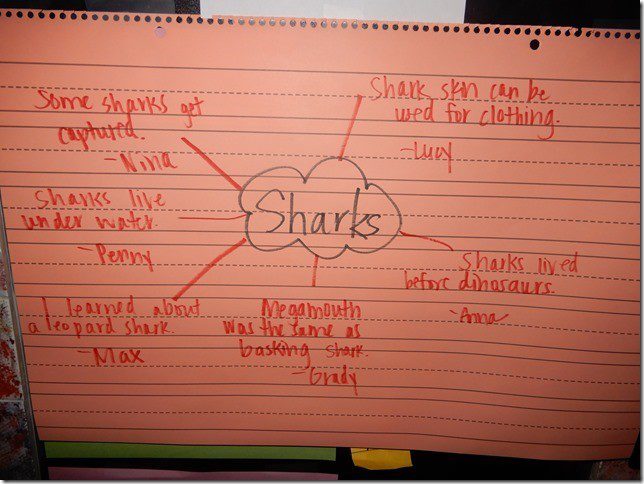 Some sharks get
captured.
-Nina
Shark skin can be
used for clothing.
-Lucy
Sharks live
under water.
-Penny
Sharks
Sharks lived
before dinosaurs.
-Anna
I learned about
a leopard shark.
-Max
Megamouth
was the same as
basking shark.
-Grady